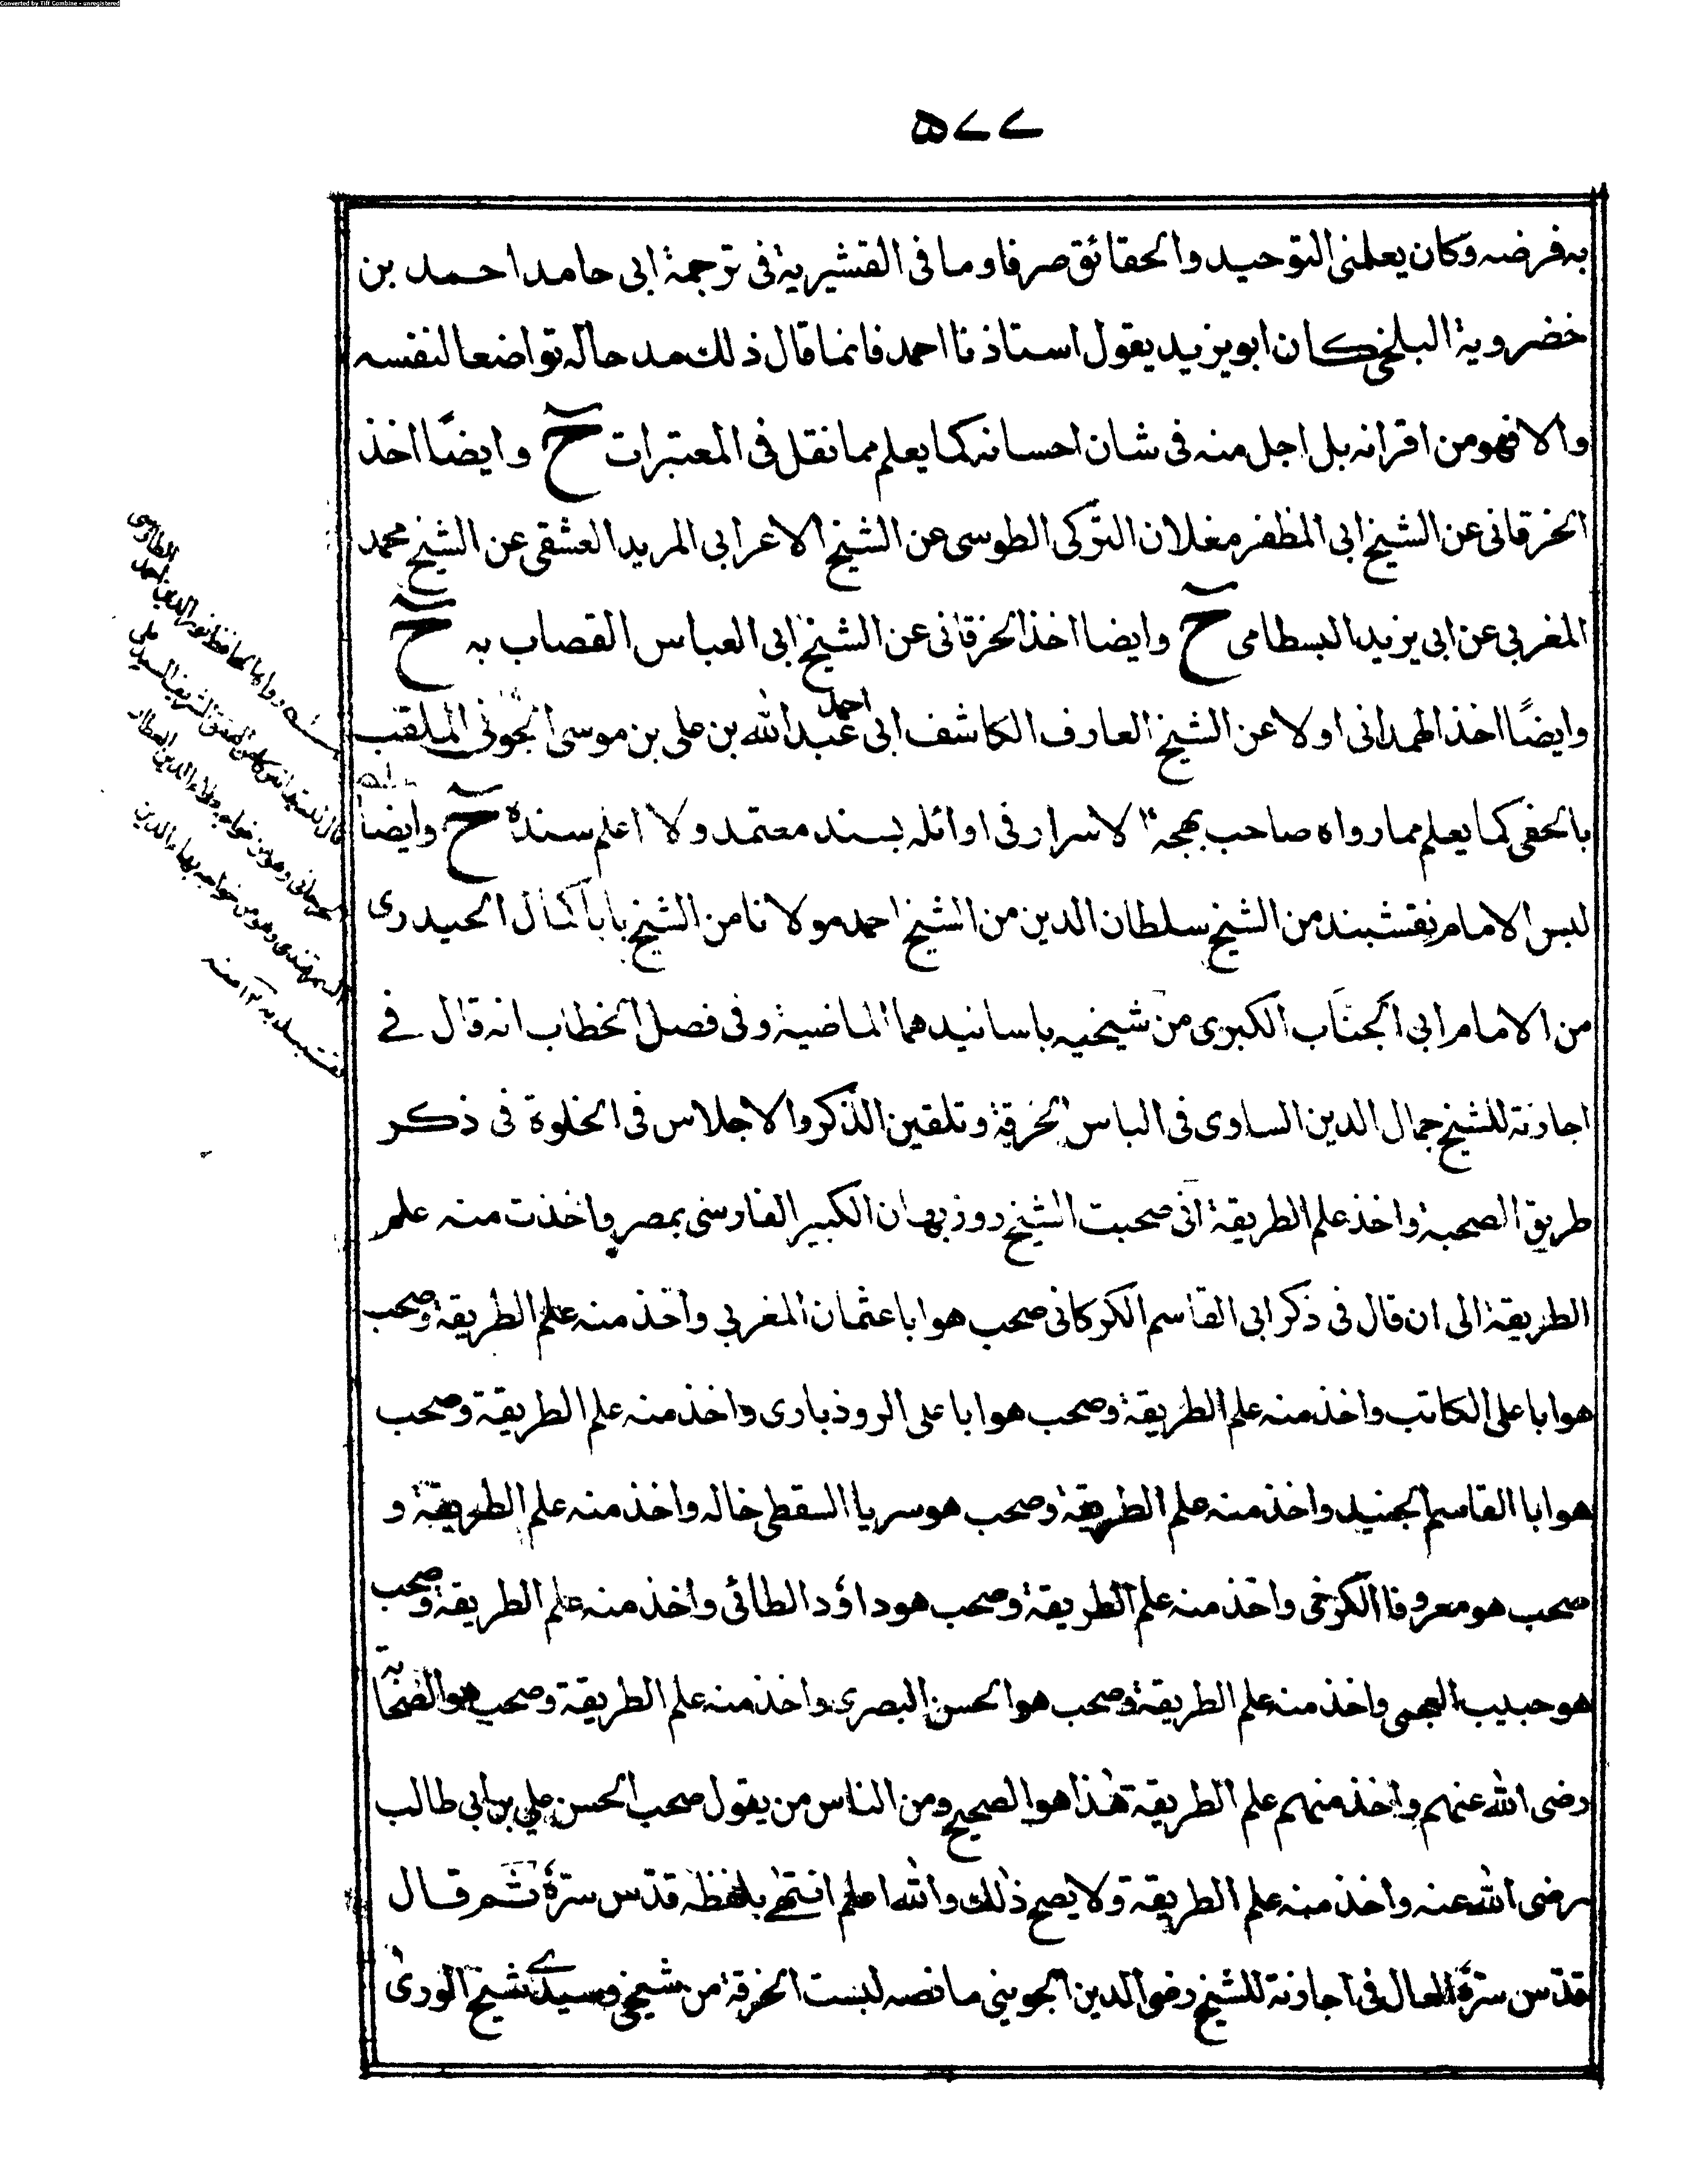 Converted by Tiff Combine - unregistered
۵۷۷
به فرضه وكان يعلمنى التوحيد والحقائق صرفا وما فى القشيرية فى ترجمة ابى حامد احمد بن
خضروية البلخى كان ابو يزيد يقول استاذنا احمد فانما قال ذلك مد حاله تواضعا لنفسه
والا فهو من اقرانه بل اجل منه فى شان احسانه كما يعلم مما نقل فى المعتبرات ح وايضًا اخذ
الخرقانى عن الشيخ ابى المظفر مغلان التركى الطوسى عن الشيخ الاعرابى المريد العشقى عن الشيخ محمد
المغربى عن ابى يزيد البسطامى ح وايضا اخذ الخرقانى عن الشيخ ابى العباس القصاب به ح
وايضًا اخذ الهمدانى اولا عن الشيخ العارف الكاشف ابى احمد عبد الله بن على بن موسى الجونى الملقب
بالحفى كما يعلم مما رواه صاحب بهجة الاسرار فى اوائله بسند معتمد ولا اعلم سنده ح وايضا
لبس الامام نقشبند من الشيخ سلطان الدين من الشيخ احمد مولانا من الشيخ بابا كمال الحيدرى
من الامام ابى الجنّاب الكبرى من شيخيه باسانيدهما الماضية وفى فصل الخطاب انه قال فے
اجازته للشيخ جمال الدين الساوى فى الباس الخرقة وتلقين الذكر والاجلاس فى الخلوة فى ذكر
طريق الصحبة واخذ علم الطريقة انى صحبت الشيخ روزبهان الكبير الفارسى بمصر واخذت منه علم
الطريقة الى ان قال فى ذكر ابى القاسم الكركانى صحب هو ابا عثمان المغربي واخذ منه علم الطريقة وصحب
هو ابا على الكاتب واخذ منه علم الطريقة وصحب هو ابا على الروذبارى واخذ منه علم الطريقة وصحب
هو ابا القاسم الجنيد واخذ منه علم الطريقة وصحب هو سريا السقطى خاله واخذ منه علم الطريقة و
صحب هو معروفا الكرخى واخذ منه علم الطريقة وصحب هو داؤد الطائى واخذ منه علم الطريقة وصحب
هو حبيب العجمى واخذ منه علم الطريقة وصحب هو الحسن البصرى واخذ منه علم الطريقة وصحب هو الصحابة
رضى الله عنهم واخذ منهم علم الطريقة هٰذا هو الصحيح ومن الناس من يقول صحب الحسن على بن ابى طالب
رضى الله عنه واخذ منه علم الطريقة ولا يصح ذٰلك والله اعلم انتهٰے بلفظه قدّس سرّهٗ ثم قال
قدّس سرّه العال فى اجازته للشيخ رضى الدين الجوينى ما نصه لبست الخرقة من شيخى وسيدے شيخ الورىٰ
الطاوسى
رواها الحافظ نور الدين احمد
قال لبستها من المحقق الشريف السيد على
الجرجانى وهو من خواجه علاء الدين العطار
السمرقندى وهو من خواجه بهاء الدين
نقشبند به ١٢ منه